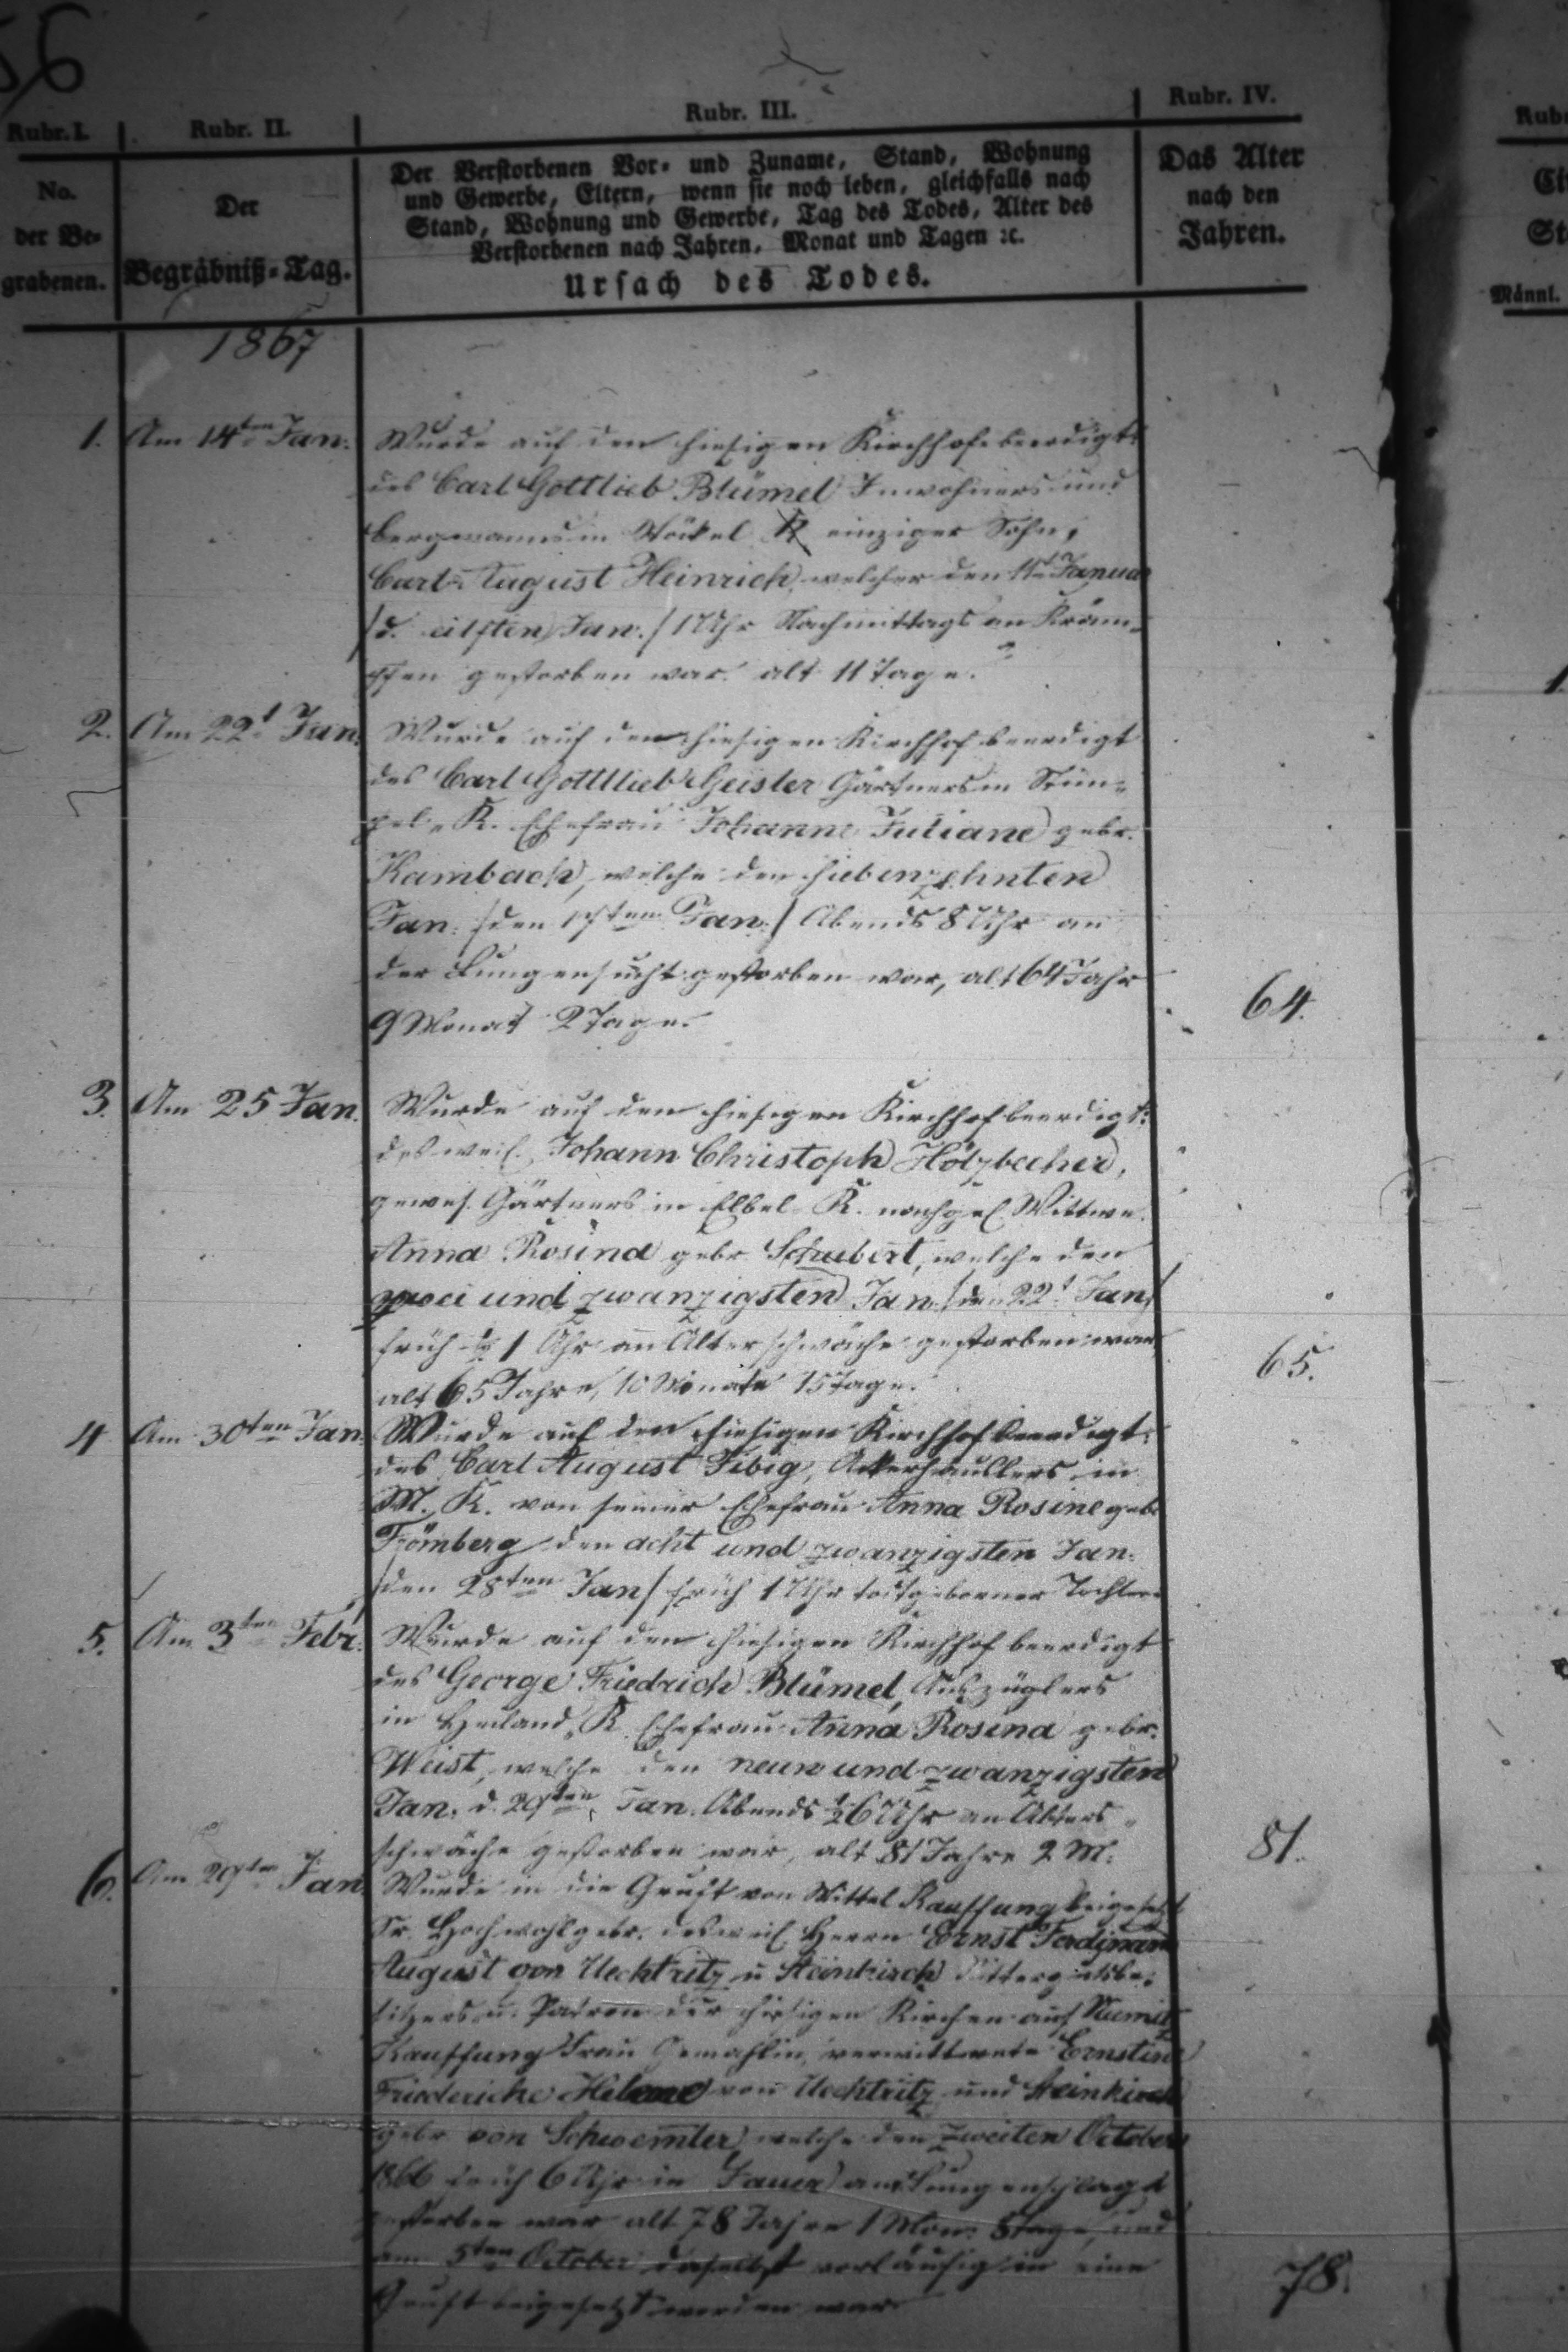 56
Rubr. I. Rubr. II. Rubr. III. Rubr. IV.
No.
der Be-
grabenen.
Der
Begräbniß-Tag.
Der Verstorbenen Vor- und Zuname, Stand, Wohnung
und Gewerbe, Eltern, wenn sie noch leben, gleichfalls nach
Stand, Wohnung und Gewerbe, Tag des Todes, Alter des
Verstorbenen nach Jahren, Monat und Tagen ꝛc.
Ursach des Todes.
Das Alter
nach den
Jahren.
Männl.
1867
1. Am 14ten Jan. Wurde auf den hiesigen Kirchhofe beerdigt:
des Carl Gottlieb Blümel Inwohners und
Bergmanns in Stöckel K einziger Sohn,
Carl August Heinrich, welcher den 11t Januar
/d. eilften Jan./ 1 Uhr Nachmittags an Kräm-
pfen gestorben war. alt 11 Tage.
2. Am 22t Jan. Wurde auf den hiesigen Kirchhof beerdigt
des Carl Gottllieb Geisler Gärtners in Stim-
pel K. Ehefrau Johanne Juliane gebr.
Kambach, welche den siebenzehnten
Jan. /den 17ten Jan./ Abends 8 Uhr an
der Lungensucht gestorben war, alt 64 Jahr
9 Monat 2 Tage. 64.
3. Am 25 Jan. Wurde auf den hiesigen Kirchhof beerdigt:
des weil. Johann Christoph Hölzbecher,
gewes. Gärtners in Elbel K. nachgel. Wittwe
Anna Rosina gebr Schubert, welche den
zwei und zwanzigsten Jan. /den 22t Jan/
früh ½ 1 Uhr an Alterschwäche gestorben war
alt 65 Jahre, 10 Monate 15 Tage. 65.
4 Am 30ten Jan. Wurde auf den hiesigen Kirchhof beerdigt:
des Carl August Fibig, Ackerhäuslers in
M. K. von seiner Ehefrau Anna Rosine geb
Frömberg den acht und zwanzigsten Jan.
/den 28ten Jan/ früh 1 Uhr todtgeborner Tochter
5. Am 3ten Febr. Wurde auf den hiesigen Kirchhof beerdigt
des George Friedrich Blümel, Auszüglers
in Heiland K Ehefrau Anna Rosina gebr.
Weist, welche den neun und zwanzigsten
Jan. d. 29ten Jan. Abends ½ 6 Uhr an Alters-
schwäche gestorben war, alt 81 Jahre 2 M. 81.
6. Am 29ten Jan. Wurde in die Gruft von Mittel Kauffung beigesetzt
Sr. Hochwohlgebr. des weil Herrn Ernst Ferdinand
August von Uechtritz u Steinkirch Rittergutsbe-
sitzers u. Patron der hiesigen Kirchen auf
Kauffung Frau Gemahlin, verwittwete Ernstine
Friedericke Helene von Uechtritz und Steinkirch
gebr von Schweinter, welche den zweiten October
1866 früh 6 Uhr in Jauer am Lungenschlag
gestorben war alt 78 Jahre 1 Mon. 5 Tage, und
am 5ten October daselbst vorläufig in eine
Gruft beigesetzt worden war. 78.